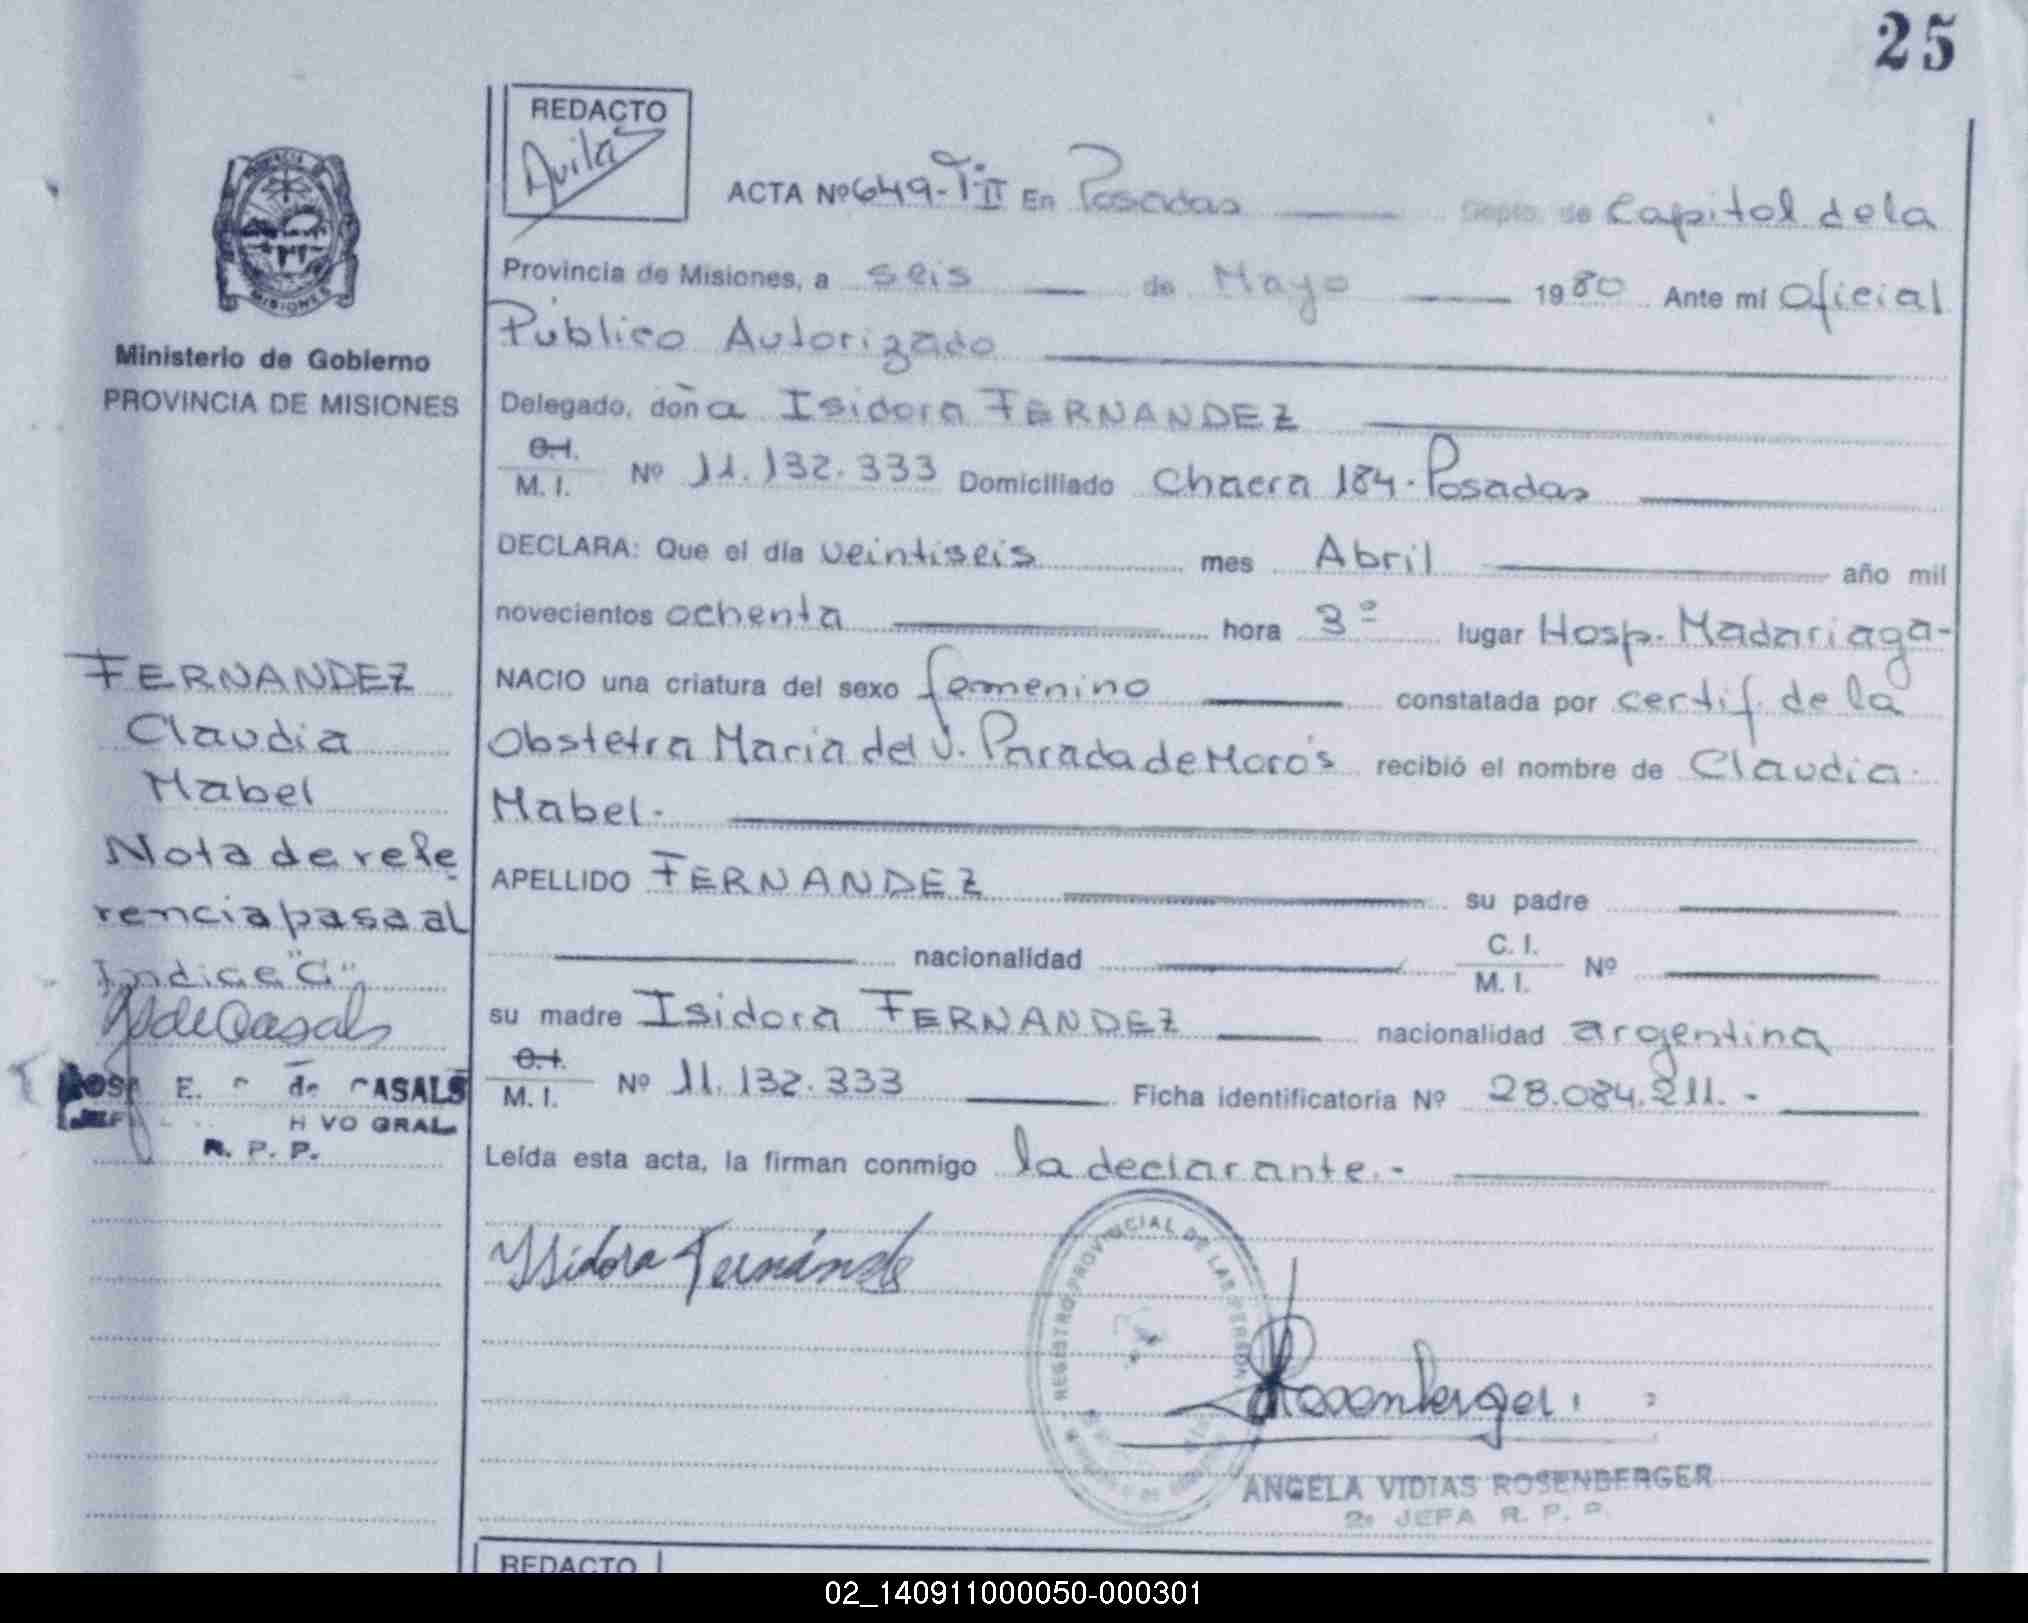 25
REDACTO
Avila
ACTA Nº 649-TºII En Posadas Depto. de Capital de la
Provincia de Misiones, a seis de Mayo 1980 Ante mí Oficial
Público Autorizado
Delegado, doña Isidora FERNANDEZ
C.I.
M. I. Nº 11.132.333 Domiciliado Chacra 184. Posadas
DECLARA: Que el día veintiseis mes Abril año mil
novecientos ochenta hora 3º lugar Hosp. Madariaga-
NACIO una criatura del sexo femenino constatada por certif. de la
Obstetra Maria del J. Parada de Moro's recibió el nombre de Claudia
Mabel.
APELLIDO FERNANDEZ su padre
nacionalidad C. I.
M. I. Nº
su madre Isidora FERNANDEZ nacionalidad argentina
C.I.
M. I. Nº 11.132.333 Ficha identificatoria Nº 28.084.211.-
Leída esta acta, la firman conmigo la declarante.-
Ysidora Fernández
REGISTRO PROVINCIAL DE LAS PERSON
Rosenberger
ANGELA VIDIAS ROSENBERGER
2º JEFA R. P. P.
MISIONES
Ministerio de Gobierno
PROVINCIA DE MISIONES
FERNANDEZ
Claudia
Mabel
Nota de refe
rencia pasa al
Indice "G"
de Casals
E. de CASALS
VO GRAL
R. P. P.
REDACTO
02_140911000050-000301